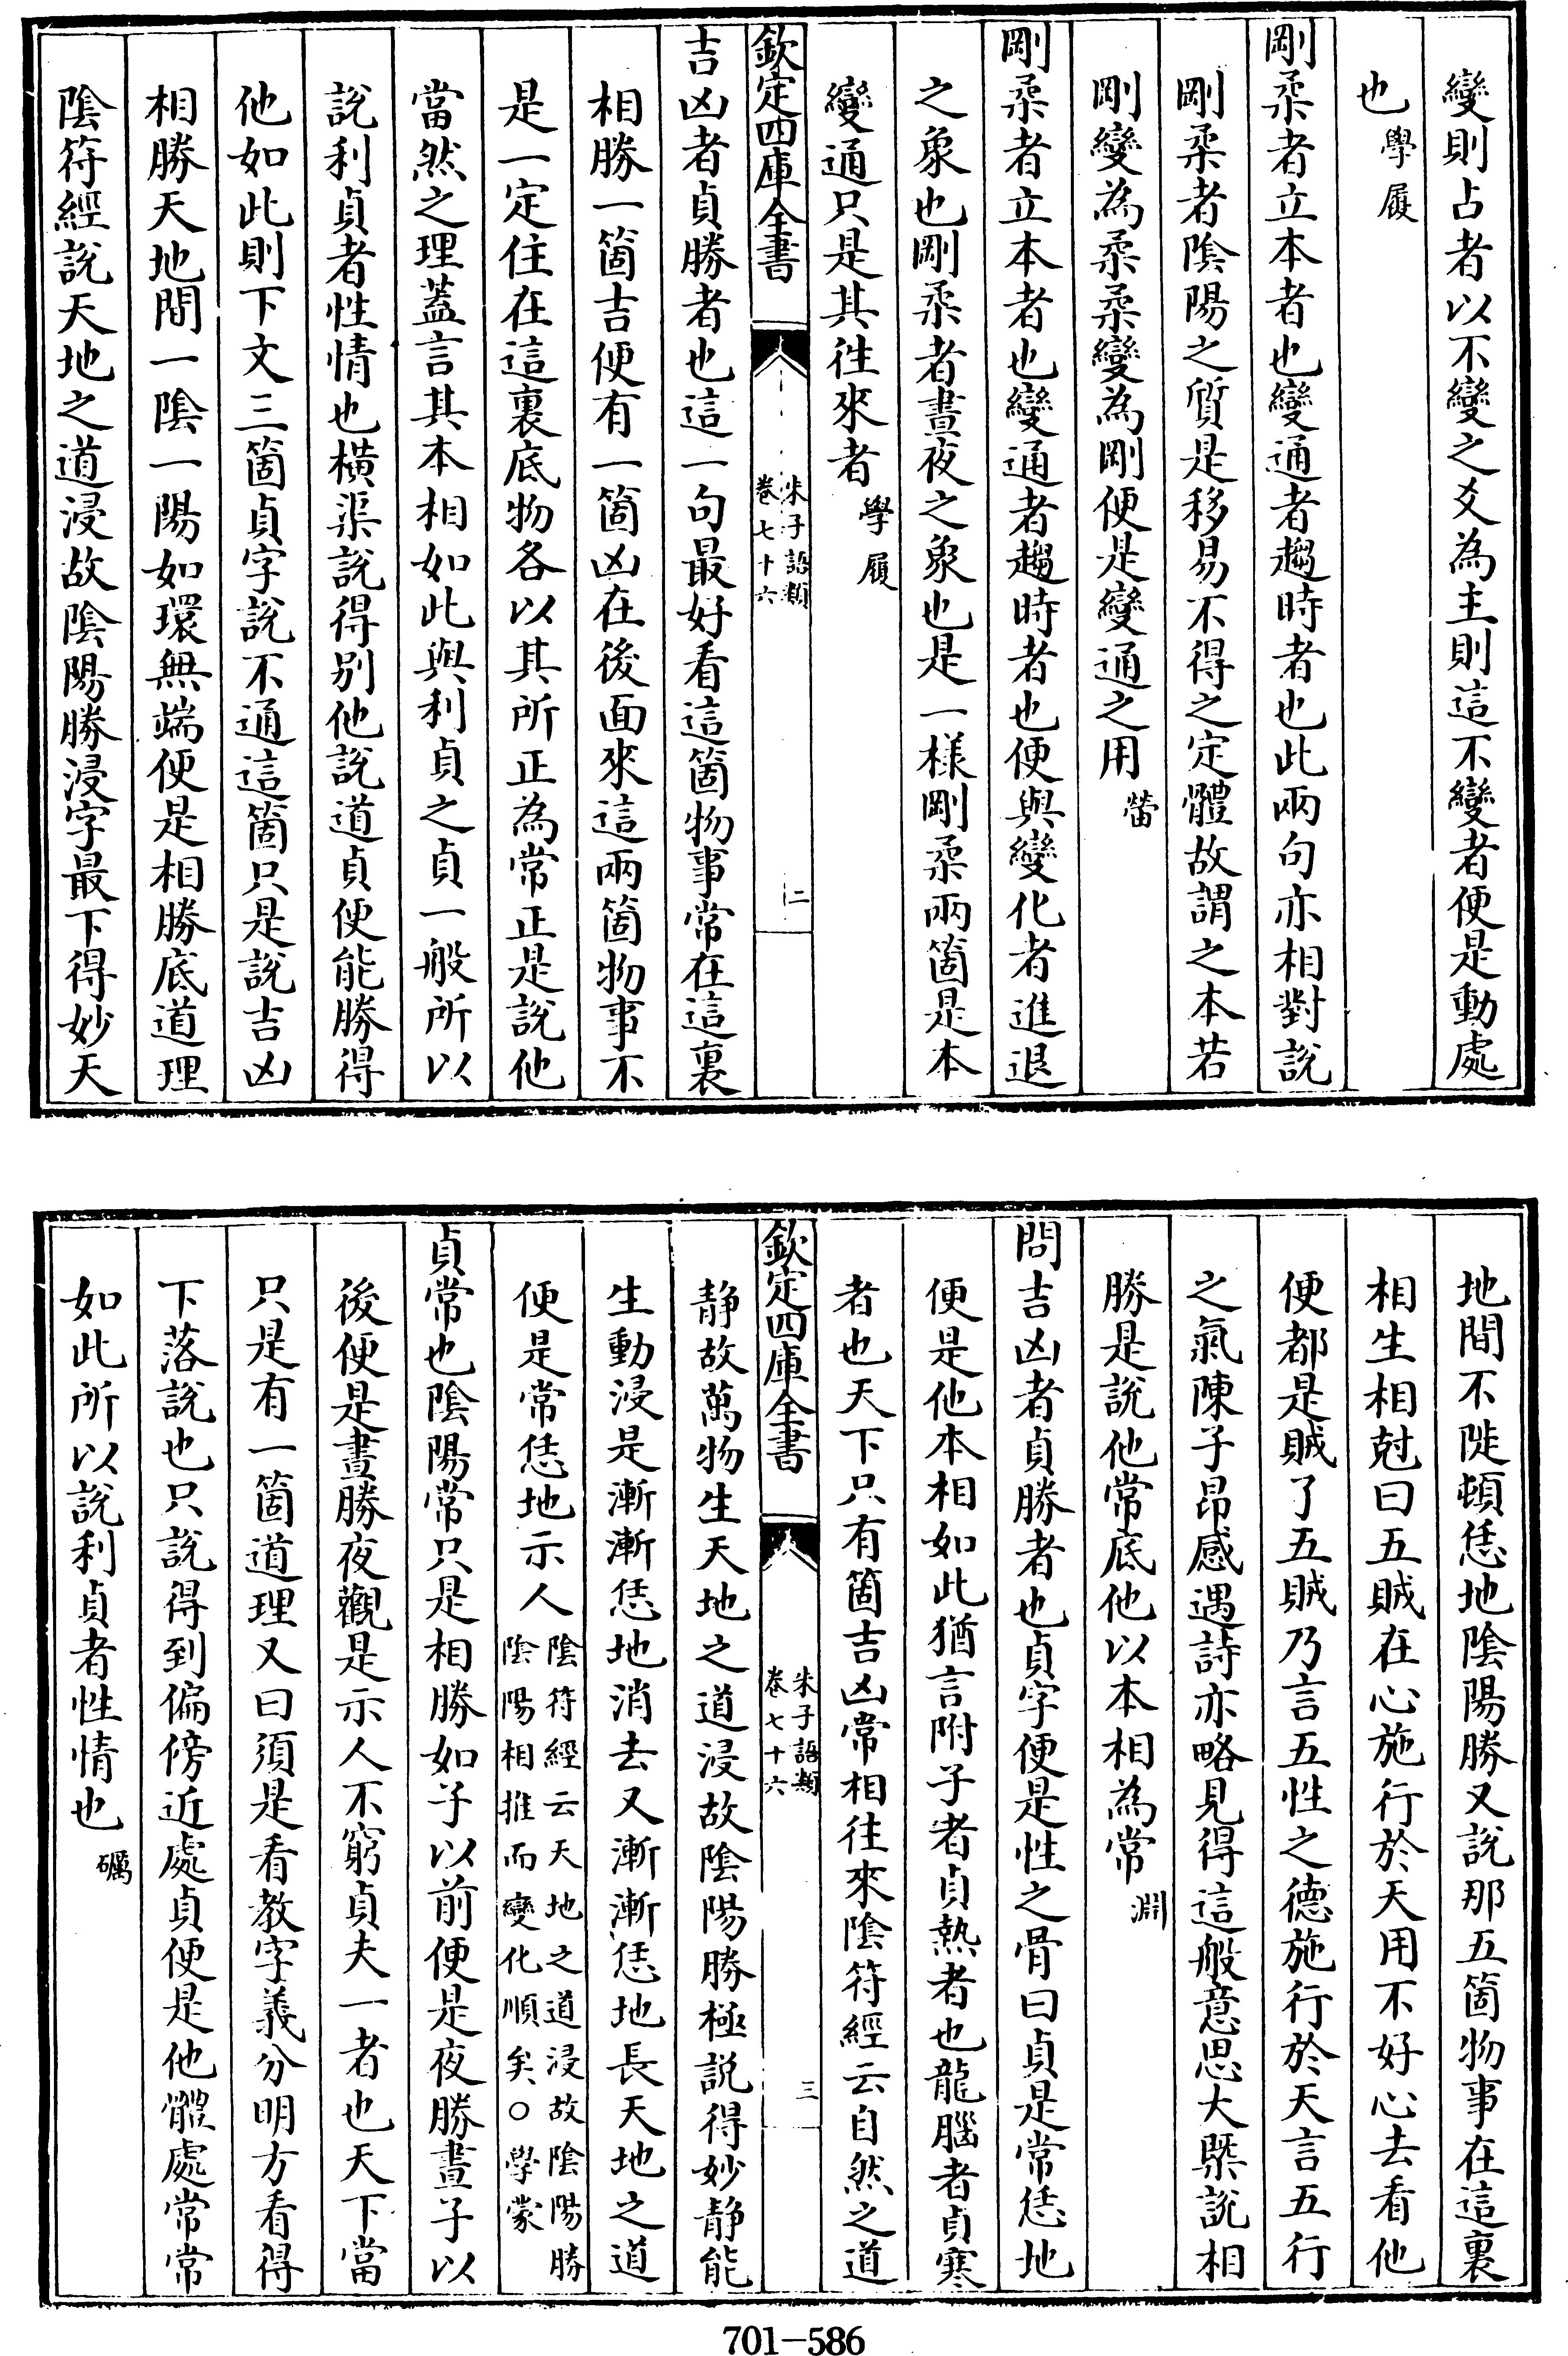 變則占者以不變之爻為主則這不變者便是動處
也學履
剛柔者立本者也變通者趨時者也此兩句亦相對說
剛柔者陰陽之質是移易不得之定體故謂之本若
剛變為柔柔變為剛便是變通之用㽦
剛柔者立本者也變通者趨時者也便與變化者進退
之象也剛柔者晝夜之象也是一樣剛柔兩箇是本
變通只是其往來者學履
欽定四庫全書
朱子語類
卷七十六
二
吉凶者貞勝者也這一句最好看這箇物事常在這裏
相勝一箇吉便有一箇凶在後面來這兩箇物事不
是一定住在這裏底物各以其所正為常正是說他
當然之理蓋言其本相如此與利貞之貞一般所以
說利貞者性情也橫渠說得别他說道貞便能勝得
他如此則下文三箇貞字說不通這箇只是說吉凶
相勝天地間一陰一陽如環無端便是相勝底道理
陰符經說天地之道浸故陰陽勝浸字最下得妙天
地間不陡頓恁地陰陽勝又說那五箇物事在這裏
相生相尅曰五賊在心施行於天用不好心去看他
便都是賊了五賊乃言五性之德施行於天言五行
之氣陳子昂感遇詩亦略見得這般意思大槩說相
勝是說他常底他以本相為常淵
問吉凶者貞勝者也貞字便是性之骨曰貞是常恁地
便是他本相如此猶言附子者貞熱者也龍腦者貞寒
者也天下只有箇吉凶常相往來陰符經云自然之道
欽定四庫全書
朱子語類
卷七十六
三
静故萬物生天地之道浸故陰陽勝極說得妙静能
生動浸是漸漸恁地消去又漸漸恁地長天地之道
便是常恁地示人陰符經云天地之道浸故陰陽勝
陰陽相推而變化順矣○學蒙
貞常也陰陽常只是相勝如子以前便是夜勝晝子以
後便是晝勝夜觀是示人不窮貞夫一者也天下當
只是有一箇道理又曰須是看教字義分明方看得
下落說也只說得到偏傍近處貞便是他體處常常
如此所以說利貞者性情也礪
701-586